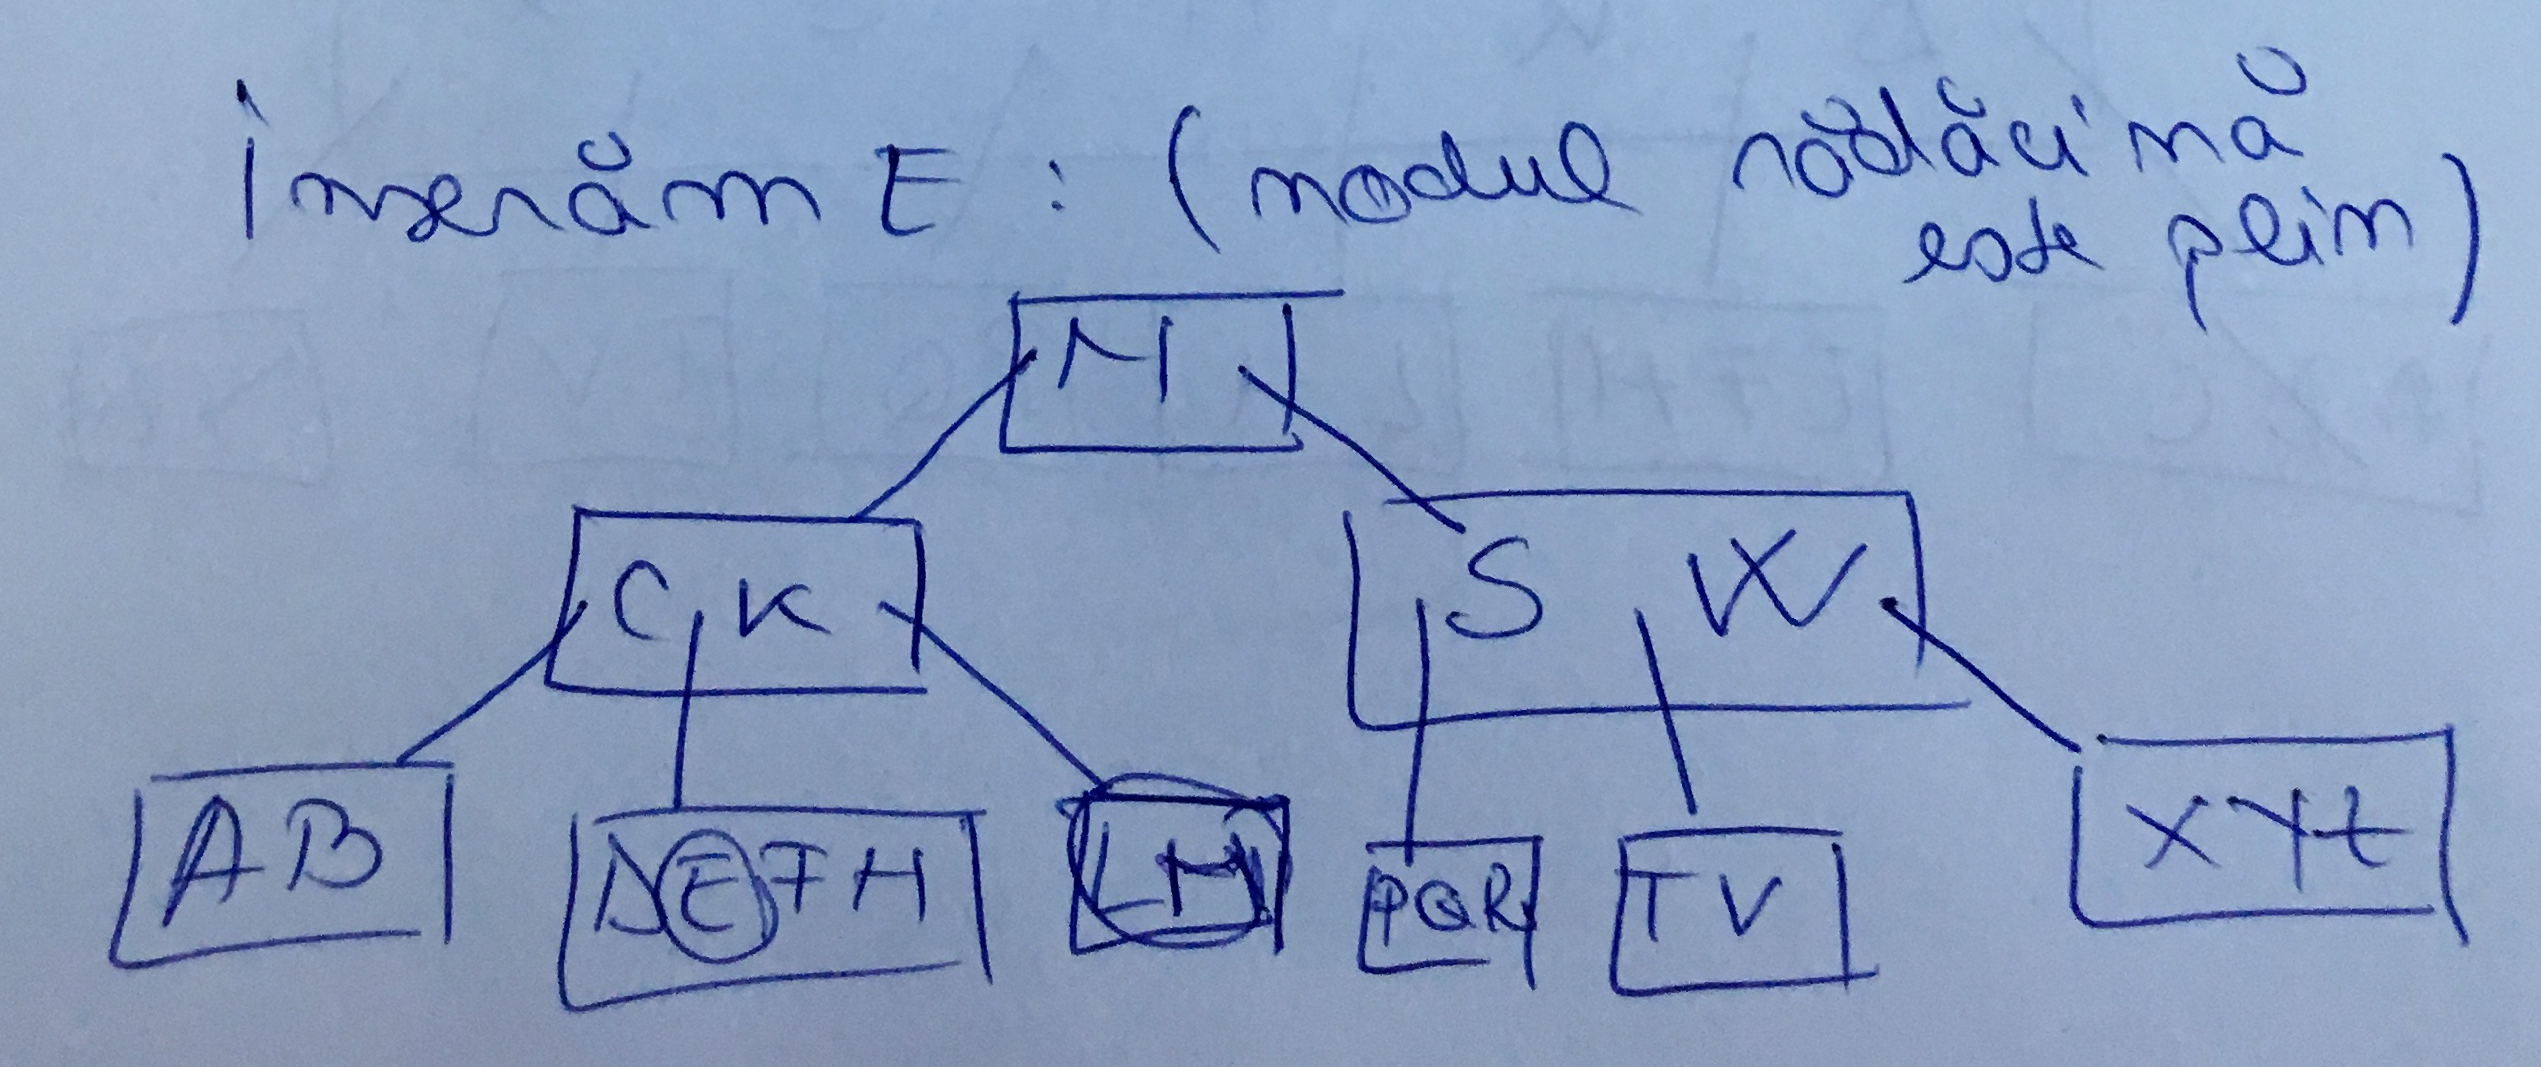 Inserăm E : (nodul rădăcină
este plin)
N
C K
S W
A B
D E F H
L M
P Q R
T V
X Y Z